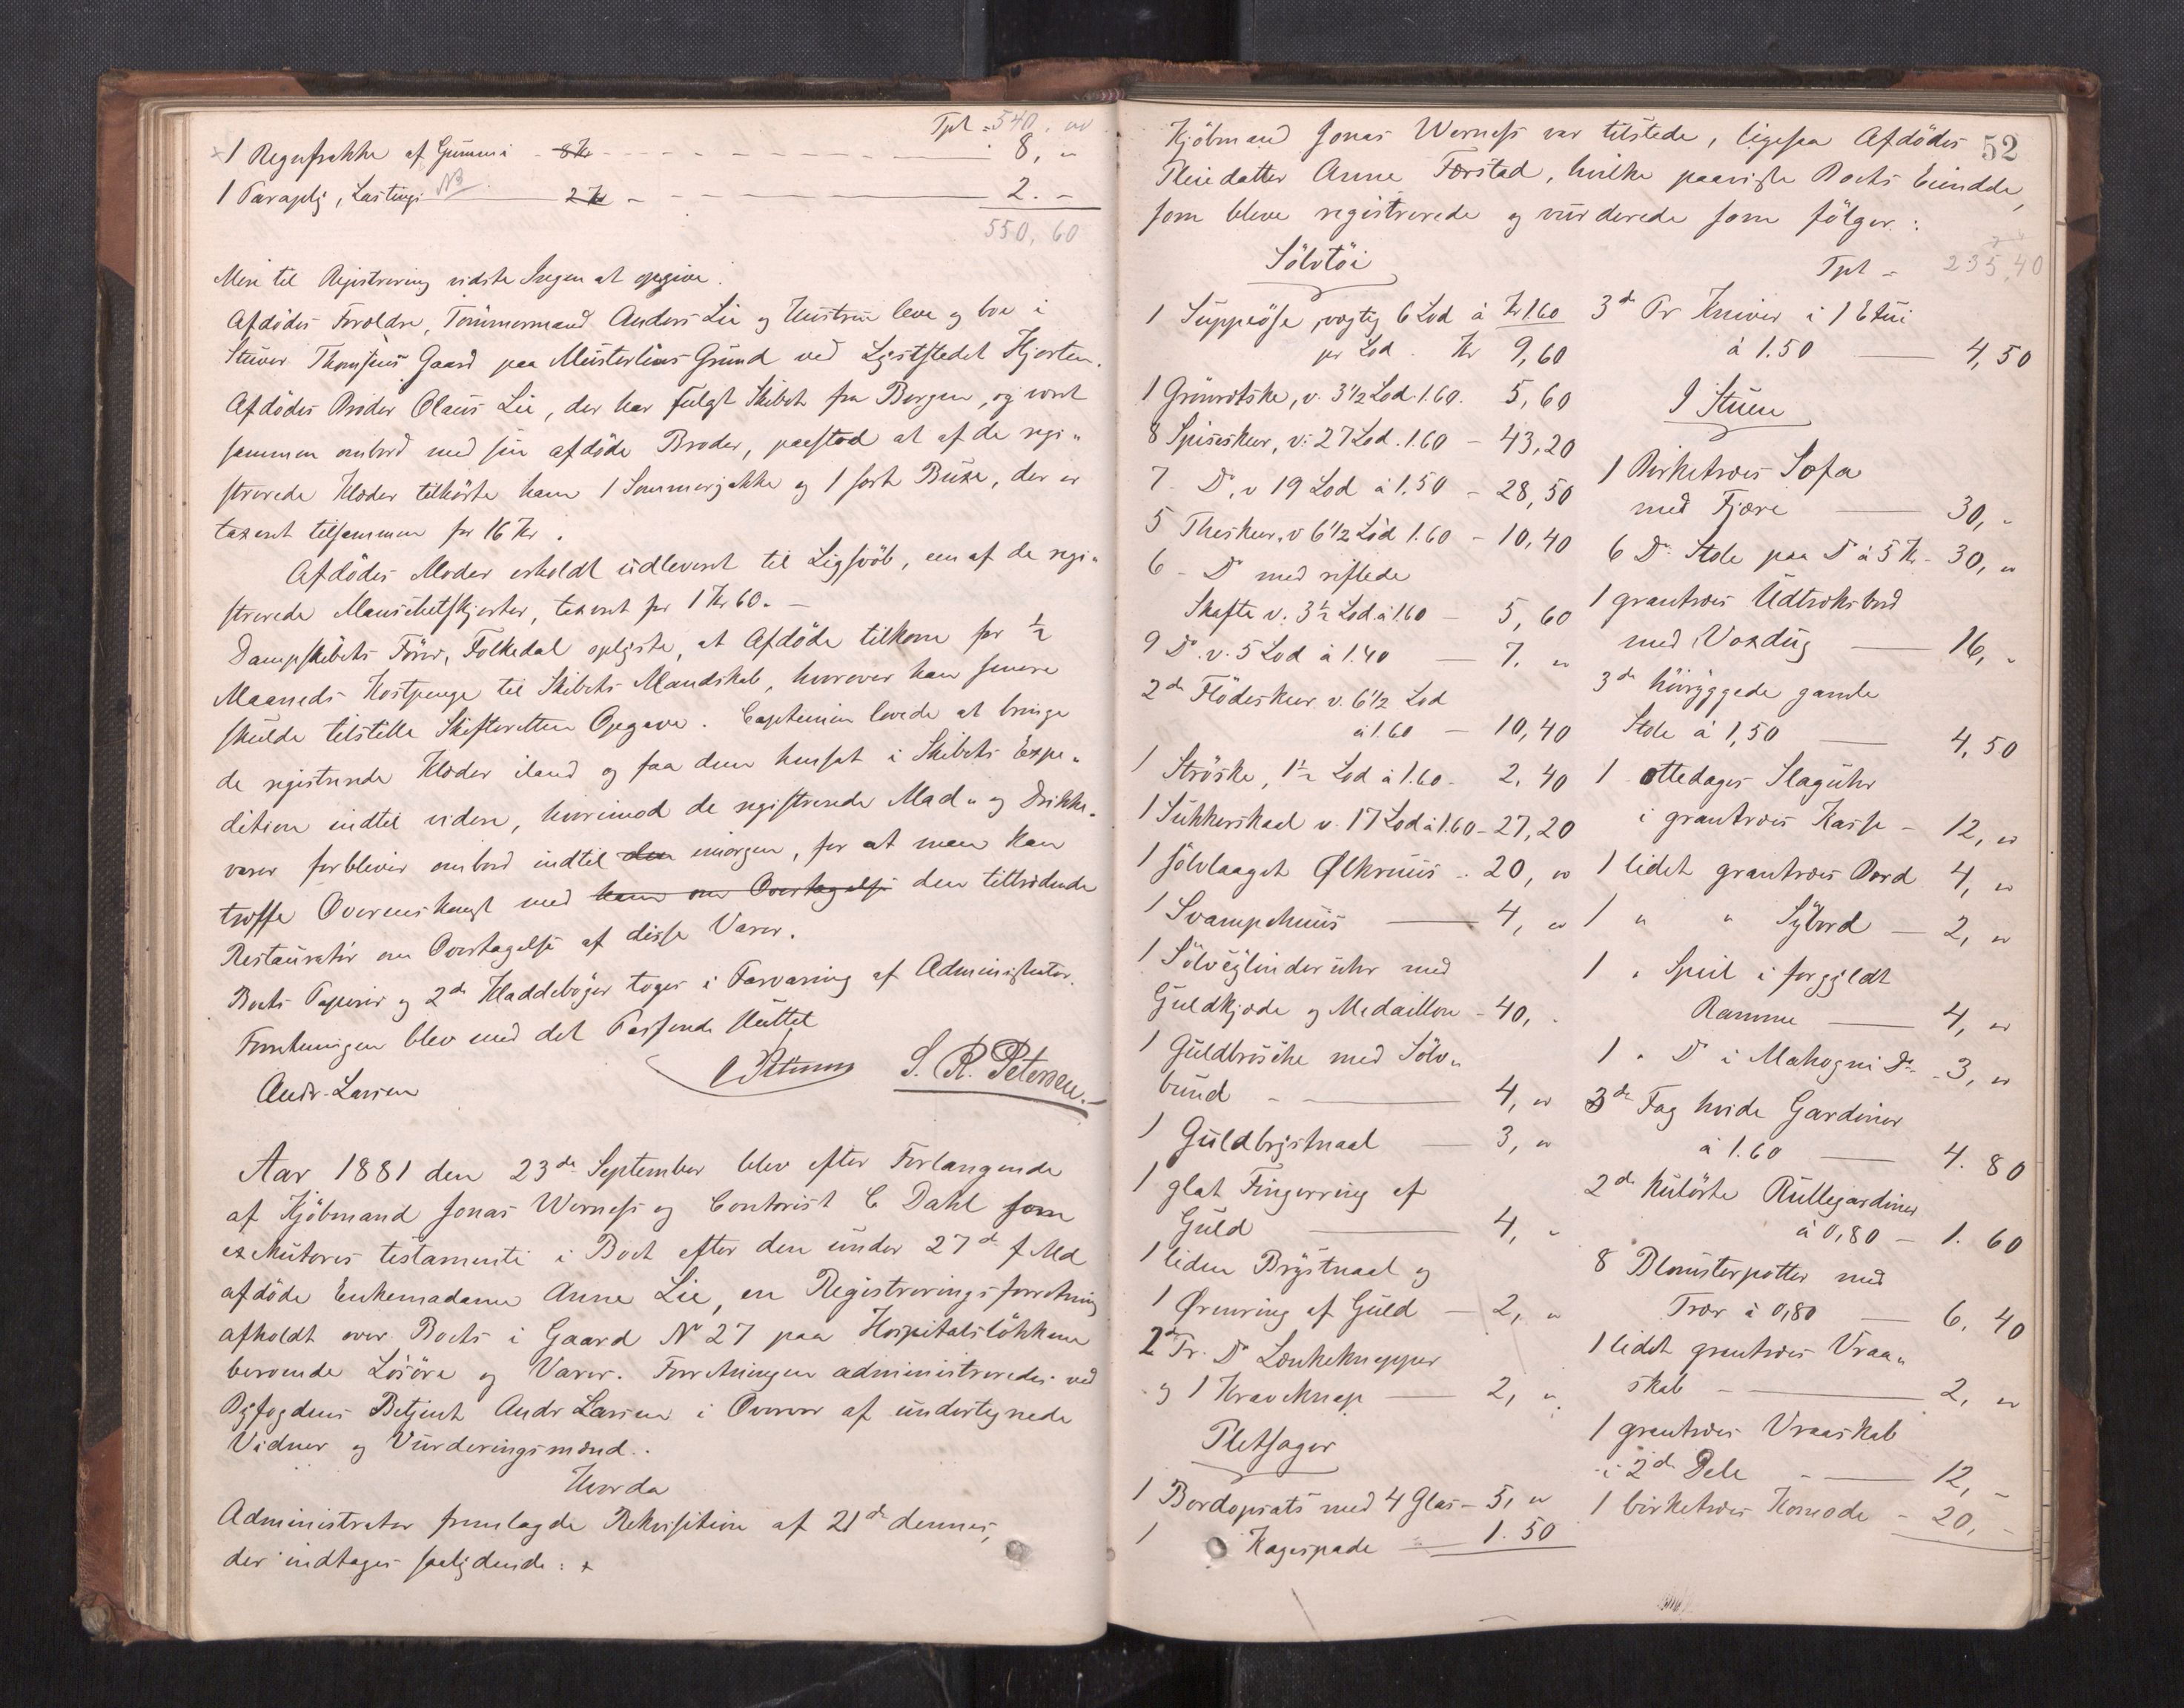 Tpt = 540.
1 Regnfrakke af Gummi - 8 Kr - 8, "
1 Paraply, Lastings NB 2 Kr - 2. -
550, 60
Mere til Registrering vidste Ingen at opgive.
Afdödes Foroldre, Tömmermand Anders Lie og Hustru leve og boe i
Stuver Thomsens Gaard paa Mursterlins Grund ved Lyststedet Hjorten.
Afdödes Broder Olaus Lie, der har fulgt Skibet fra Bergen, og voret
sammen ombord med sin afdöde Broder, paastod at af de regi„
strerede Kloder tilhörte ham 1 Sommerjakke og 1 sort Buxe, der er
taxeret tilsammen for 16 Kr.
Afdödes Moder erholdt udleveret til Ligsvöb, een af de regi„
strerede Manschetskjorter, taxeret for 1 Kr 60. -
Dampskibets Förer, Folkedal oplyste, at Afdöde tilkom for ½
Maaneds Kostpenge til Skibets Mandskab, hvorover han senere
skulde tilstille Skifteretten Opgave. Capteinen lovede at bringe
de registrerede Kloder iland og faa dem hensat i Skibets Expe„
dition indtil videre, hvorimod de registrerede Mad„ og Drikke„
varer forbliver ombord indtil den imorgen, for at man kan
troffe Overenskomst med ham om Overtagelse den tiltrodende
Restauratör om Overtagelse af disse Varer.
Boets Papirer og 2de Kladdeböger toges i Forvaring af Administrator.
Forretningen blev med det Passerede sluttet
Andr. Larsen
S. R. Petersen.
Aar 1881 den 23de September blev efter Forlangende
af Kjöbmand Jonas Werness og Contorist C Dahl som
exekutores testamenti i Boet efter den under 27de f Md
afdöde Enkemadame Anne Lie, en Registreringsforretning
afholdt over Boets i Gaard No 27 paa Hospitalslökken
beroende Lösöre og Varer. Forretningen administreredes ved
Byfogdens Betjent Andr Larsen i Overvær af undertegnede
Vidner og Vurderingsmænd.
Hvorda
Administrator fremlagde Rekvisition af 21de dennes,
der indtages saalydende: +
52
Kjöbmand Jonas Werness var tilstede, ligesaa Afdödes
Pleiedatter Anne Forstad, hvilke paaviste Boets Eiendele,
som bleve registrerede og vurderede som fölger:
Sölvtöi
1 Suppeöse, vogtig 6 Lod à Kr 1.60
pr Lod. Kr 9,60
1 Grönrotske, v. 3½ Lod. 1.60. 5,60
8 Spiseskeer, v: 27 Lod. 1.60 - 43,20
7 - Do, v 19 Lod à 1.50 - 28,50
5 Theskeer, v 6½ Lod 1.60 - 10,40
6 - Do med riflede
Skafte v. 3½ Lod. à 1.60 - 5,60
9 Do. v. 5 Lod à 1.40 - 7. "
2de Flödeskeer v. 6½ Lod
à 1.60 - 10,40
1 Ströske, 1½ Lod à 1.60 - 2,40
1 Sukkerskaal v. 17 Lod à 1.60 - 27,20
1 sölvlaaget Ølkruus - 20, "
1 Svampehuus - 4, "
1 Sölvcylinderuhr med
Guldkjæde og Medaillon - 40, .
1 Guldbrosche med Sölv„
bund - 4, "
1 Guldbrystnaal - 3, "
1 glat Fingerring af
Guld - 4, "
1 liden Brystnaal og
1 Ørenring af Guld - 2, "
2 Pr. Do Lænkeknapper
og 1 Kraveknap - 2, "
Pletsager
1 Bordopsats med 4 Glas - 5, "
1 Kagespade - 1.50
Tpt - 235,40
3de Pr Kniver i 1 Etui
à 1.50 - 4,50
I Stuen
1 Birketræes Sofa
med Fjære - 30, "
6 Do Stole paa Do à 5 Kr - 30, "
1 grantræes Udtræksbord
med Voxdug - 16, "
3de höiryggede gamle
Stole à 1,50 - 4,50
1 ottedages Slaguhr
i grantræes Kasse - 12, "
1 lidet grantræes Bord 4, "
1 " " Sybord - 2, "
1 " Speil i forgyldt
Ramme - 4, "
1 " Do i Mahogni Do - 3, "
3de Fag hvide Gardiner
à 1.60 - 4.80
2de kulörte Rullegardiner
à 0,80 - 1.60
8 Blomsterpotter med
Træer à 0,80 - 6.40
1 lidet grantræes Vraa„
skab - 2, "
1 grantræes Vraaskab
i 2de Dele - 12, -
1 birketræes Komode - 20, -